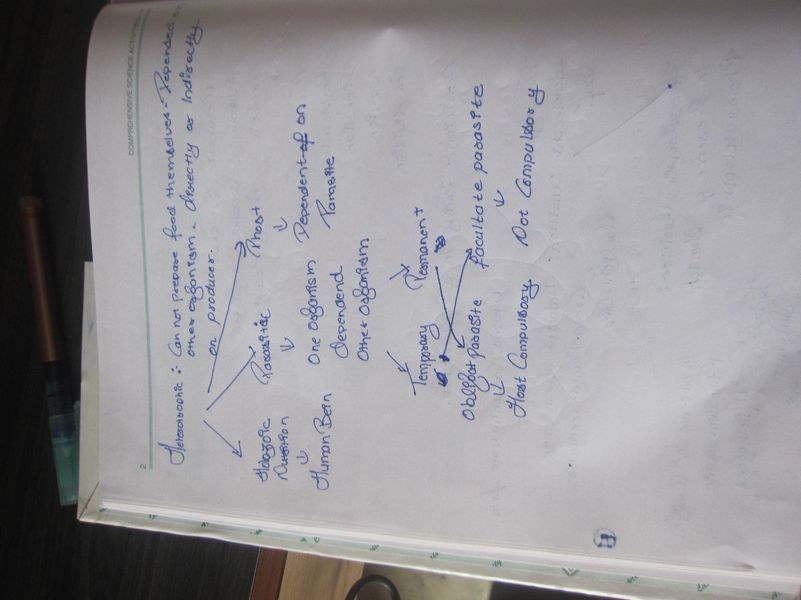 COMPREHENSIVE SCIENCE ACTIVITIES
2
Heterotrophic :- Can not prepare food themselves - Depended on
other organism - directly or Indirectly
on producer.
Holozoic Nutrition
↓
Human Bein
Parasitic
↓
One organism
dependend
Other organism
Host
↓
Dependent of on
Parasite
Temporary
Permanent
Obligat parasite
↓
Host Compulsory
facultate parasite
↓
Not Compulsory